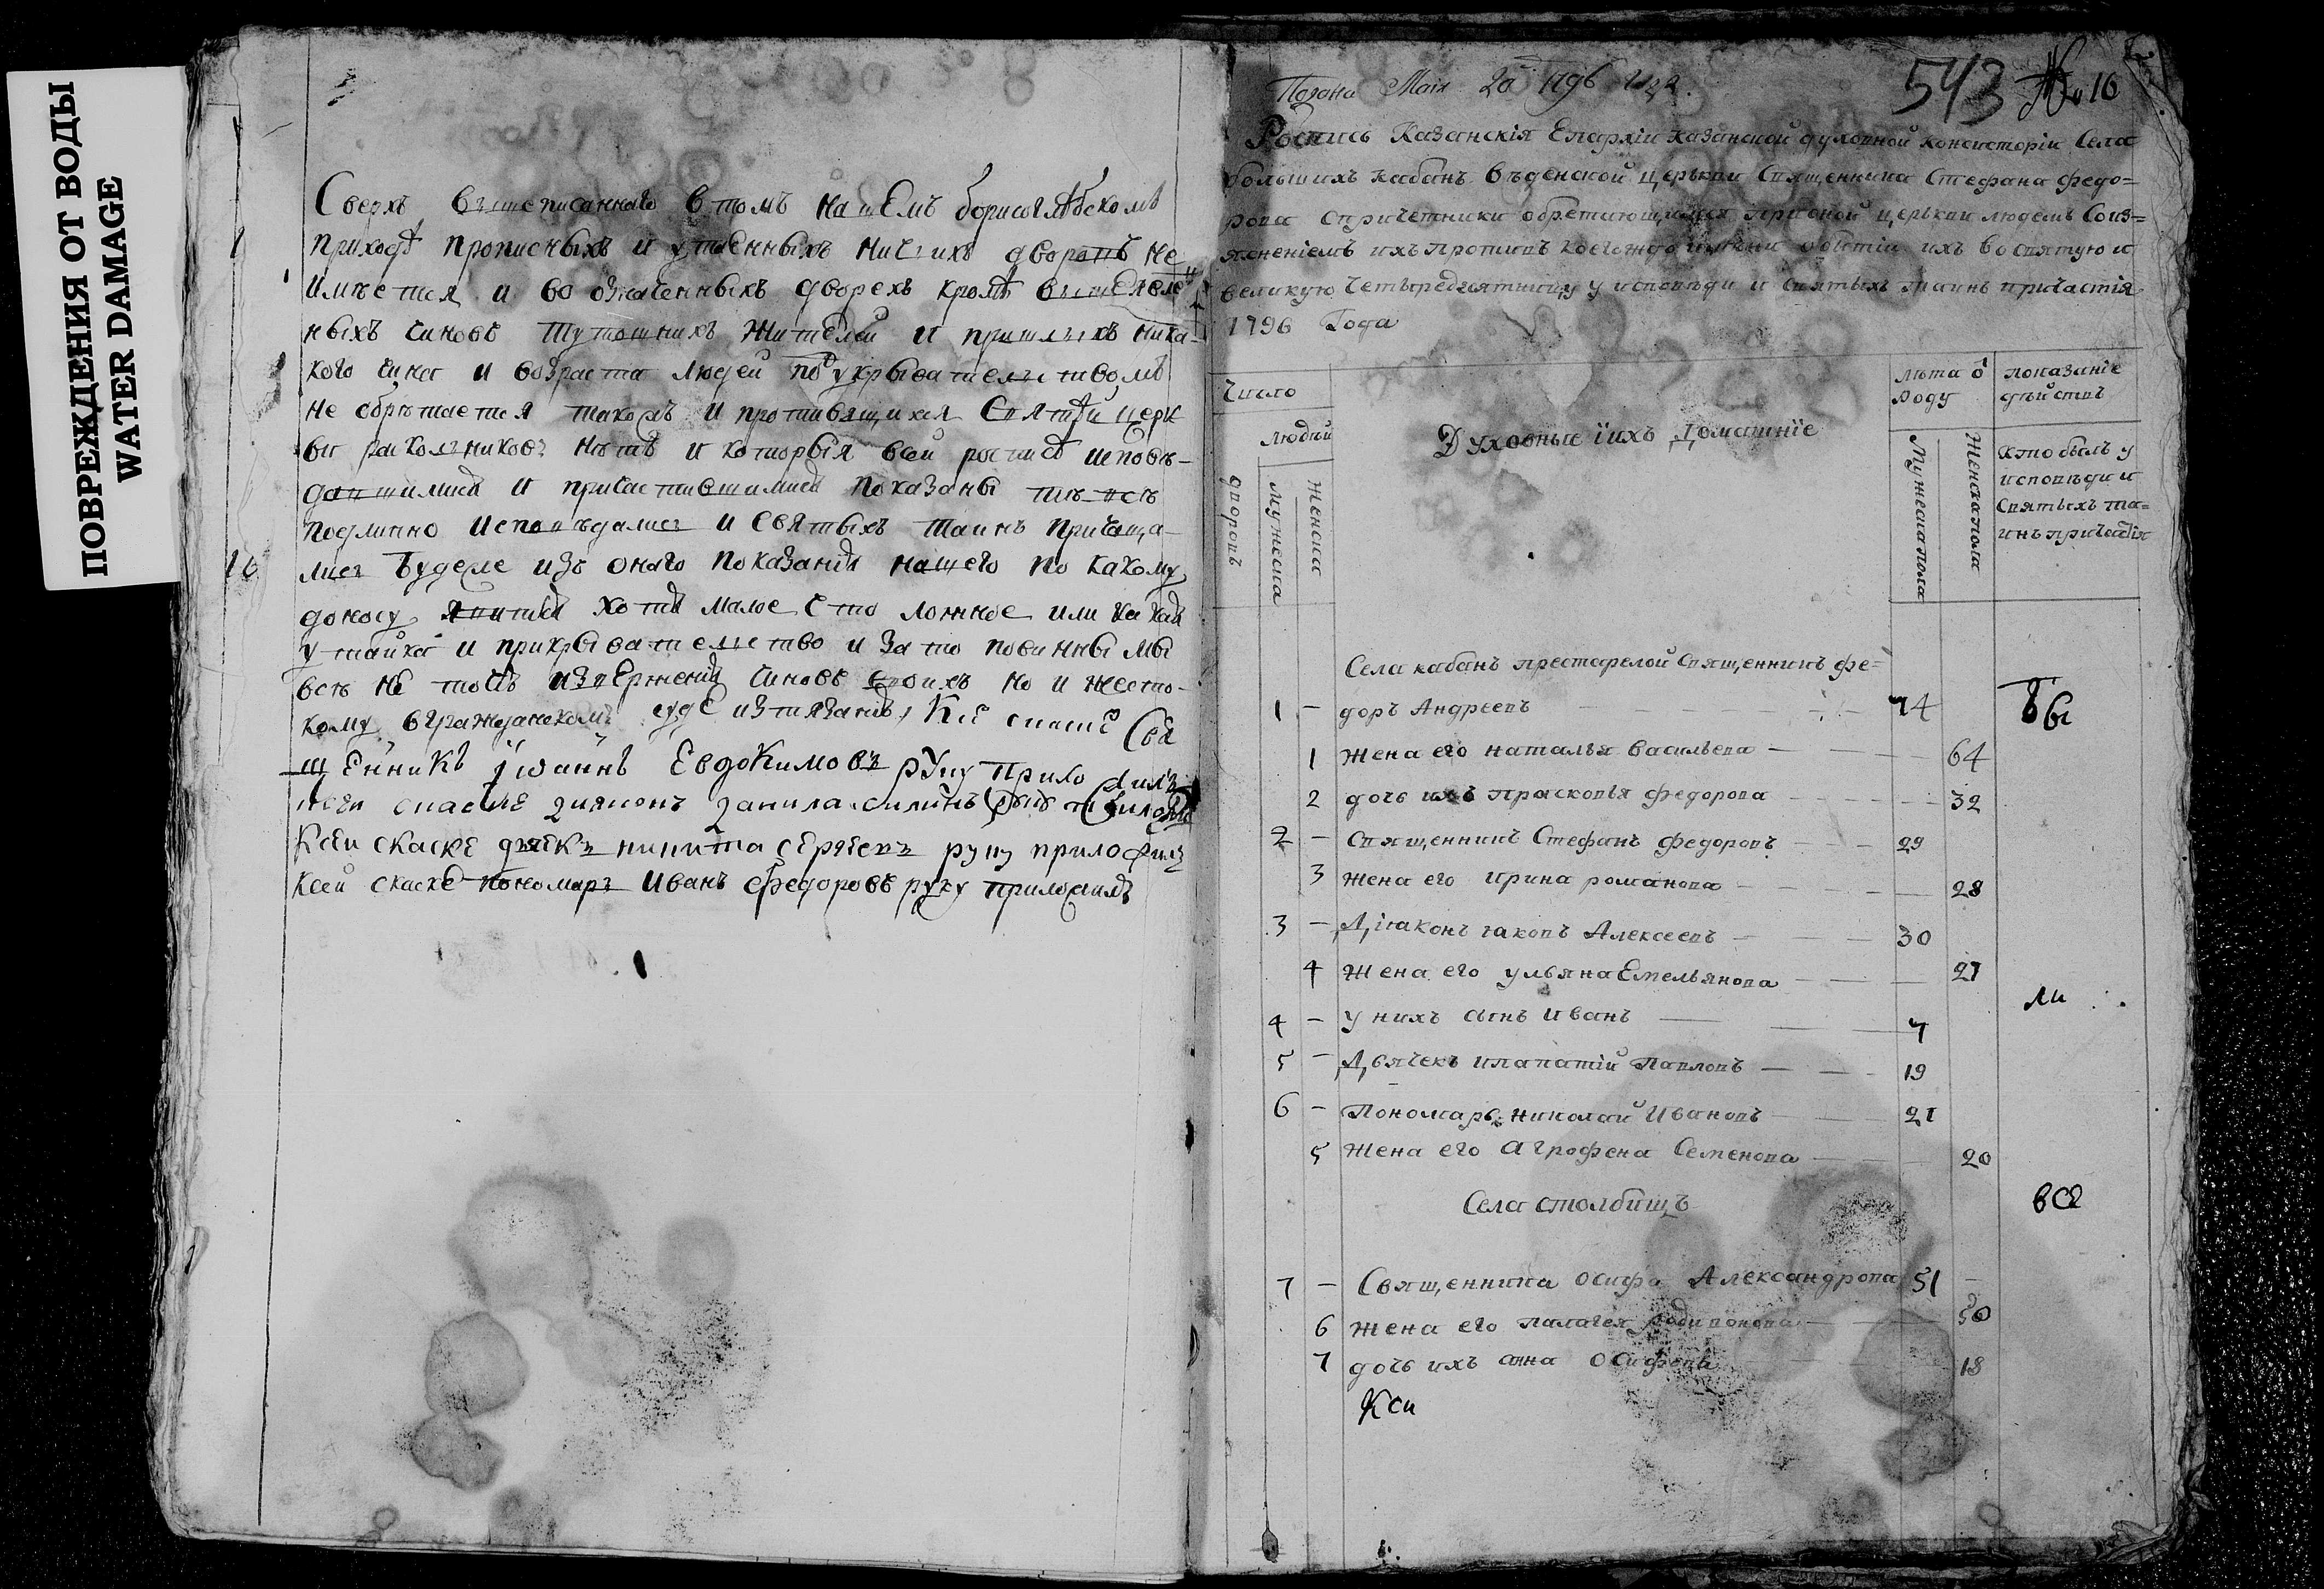 ПОВРЕЖДЕНИЯ ОТ ВОДЫ
WATER DAMAGE
Сверхъ вышеписаннаго в томъ нашемъ борисоглѣбскомъ
приходѣ прописныхъ и утаенныхъ ничьихъ дворовъ не
имѣется и во означенныхъ дворехъ кромѣ
ныхъ чиновъ тутошнихъ жителей и пришлыхъ ника-
кого чина и возраста людей под укрывателствомъ
не обрѣтается такожъ и противящихся Святѣй церк
ви расколниковъ нѣтъ и которыя всей росписѣ исповѣ-
давшимися и причастившимися показаны тѣ всѣ
подлинно исповѣдались и святыхъ таинъ прича­ща-
лись Буде же изъ оного показания нашего по какому
доносу явится хотя малое что ложное или какая
утайка и прикрывателство и за то повинны мы
всѣ не токмо извержения чиновъ своихъ но и жесто-
кому вгражданскомъ судѣ изтязанию
щенникъ Іѡаннъ Евдокимовъ руку приложилъ
диаконъ данила силинъ
Ксеи скаске дьячекъ никита сергеевъ руку приложилъ
ксеи скаске пономарь Иванъ Федоровъ руку приложилъ
Подана Маія 20 1796 года.
543 № 10
Роспись Казанскія Епархіи казанской духовной консисторіи Села
большихъ кабанъ Введенской церькви Священника Стефана федо=
рова спричетники обретающимся прионой церькви людемъ Соиз=
яснениемъ ихъ противъ коегождо имени о бытіи ихъ во святую и
великую четыредесятницу у исповѣди и святыхъ таинъ причастія
1796 Года
Число
людей
дворовъ
мужеска
женска
Духовные іихъ Домашніе
лѣта ѿ роду
Мужеска пола
Женска пола
показаніе дѣйствъ
кто былъ у
исповѣди и
Святыхъ та=
инъ причастія
Села кабанъ престарелой Священникъ фе=
1 – доръ Андреевъ 74 Бы
1 жена его наталья васильева 64
2 дочь ихъ прасковья федорова 32
2 – Священникъ Стефанъ федоровъ 29
3 жена его ирина романова 28
3 – Діаконъ іаковъ Алексеевъ 30
4 жена его ульяна Емельянова 27
ли
4 – у нихъ сынъ иванъ 7
5 – Дьячекъ ипатий Павловъ 19
6 – Пономарь николай Ивановъ 21
5 жена его Агрофена Семенова 20
Села столбищъ
все
7 – Священника осифа Александрова 51
6 жена его палагея родивонова 50
7 дочь ихъ анна осифова 18
Кси